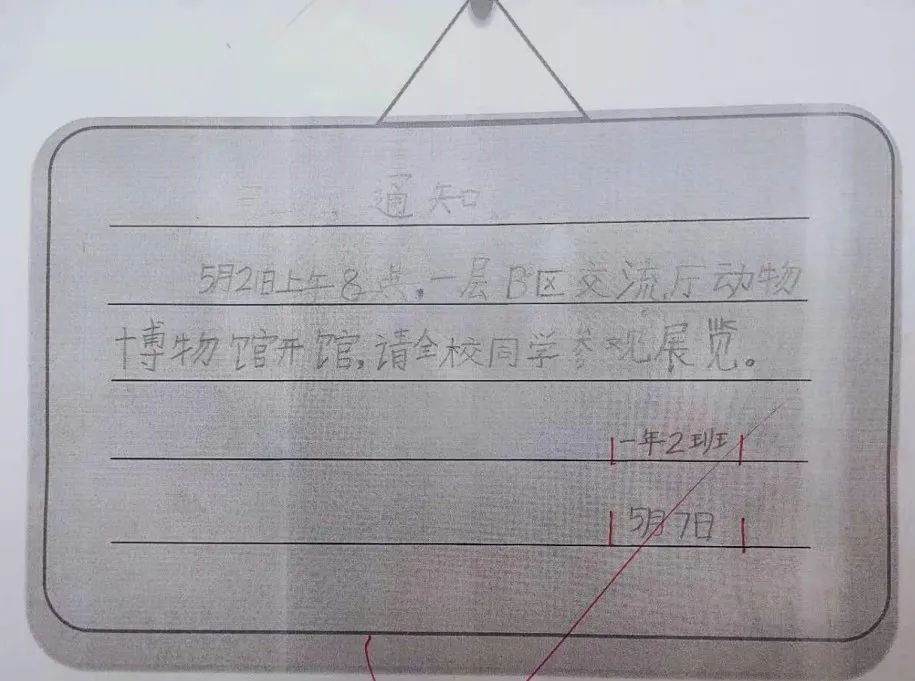 通知
5月2日上午8点,一层B区交流厅动物
博物馆开馆,请全校同学参观展览。
一年2班
5月7日